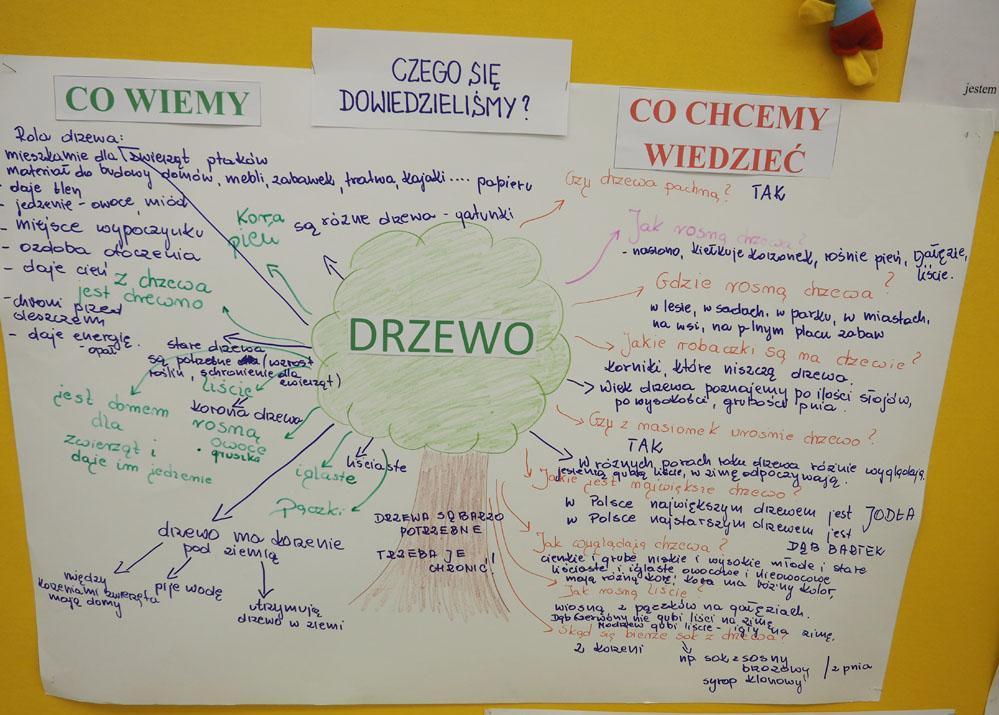 CZEGO SIĘ
DOWIEDZIELIŚMY?
CO WIEMY
Rola drzewa:
mieszkanie dla zwierząt ptaków
materiał do budowy domów, mebli, zabawek, tratwa, kajaki .... papieru
- daje tlen
- jedzenie - owoce, miód
- miejsce wypoczynku
- ozdoba otoczenia
- daje cień
- chroni przed
deszczem
- daje energię
- opał
Kora
pień
są różne drzewa - gatunki
z drzewa
jest drewno
stare drzewa
są potrzebne (wzrost
roślin, schronienie dla
zwierząt)
liście
korona drzewa
rosną
owoce
• gruszka
jest domem
dla
zwierząt i
daje im jedzenie
iglaste
liściaste
Pączki
drzewo ma korzenie
pod ziemią
między
korzeniami zwierzęta
mają domy
pije wodę
utrzymują
drzewo w ziemi
DRZEWO
DRZEWA SĄ BARDZO
POTRZEBNE
TRZEBA JE
CHRONIĆ!
CO CHCEMY
WIEDZIEĆ
Czy drzewa pachną? TAK
Jak rosną drzewa?
- nasiono, kiełkuje korzonek, rośnie pień, gałęzie,
liście.
Gdzie rosną drzewa?
w lesie, w sadach, w parku, w miastach,
na wsi, na p-lnym placu zabaw
Jakie robaczki są na drzewie?
korniki, które niszczą drzewa.
Wiek drzewa poznajemy po ilości słojów,
po wysokości, grubości pnia.
Czy z nasionek urośnie drzewo?
TAK
W różnych porach roku drzewa różnie wyglądają.
jesienią gubią liście, w zimę odpoczywają.
Jakie jest największe drzewo?
w Polsce największym drzewem jest JODŁA
w Polsce najstarszym drzewem jest
DĄB BARTEK
Jak wyglądają drzewa?
cienkie i grube niskie i wysokie młode i stare
liściaste i iglaste owocowe i nieowocowe
mają różną korę, kora ma różny kolor,
Jak rosną liście?
wiosną z pączków na gałęziach.
Dąb czerwony nie gubi liści na zimę
Modrzew gubi liście - igły na zimę.
Skąd się bierze sok z drzewa?
z korzeni
np sok z sosny
brzozowy
syrop klonowy
z pnia
jestem